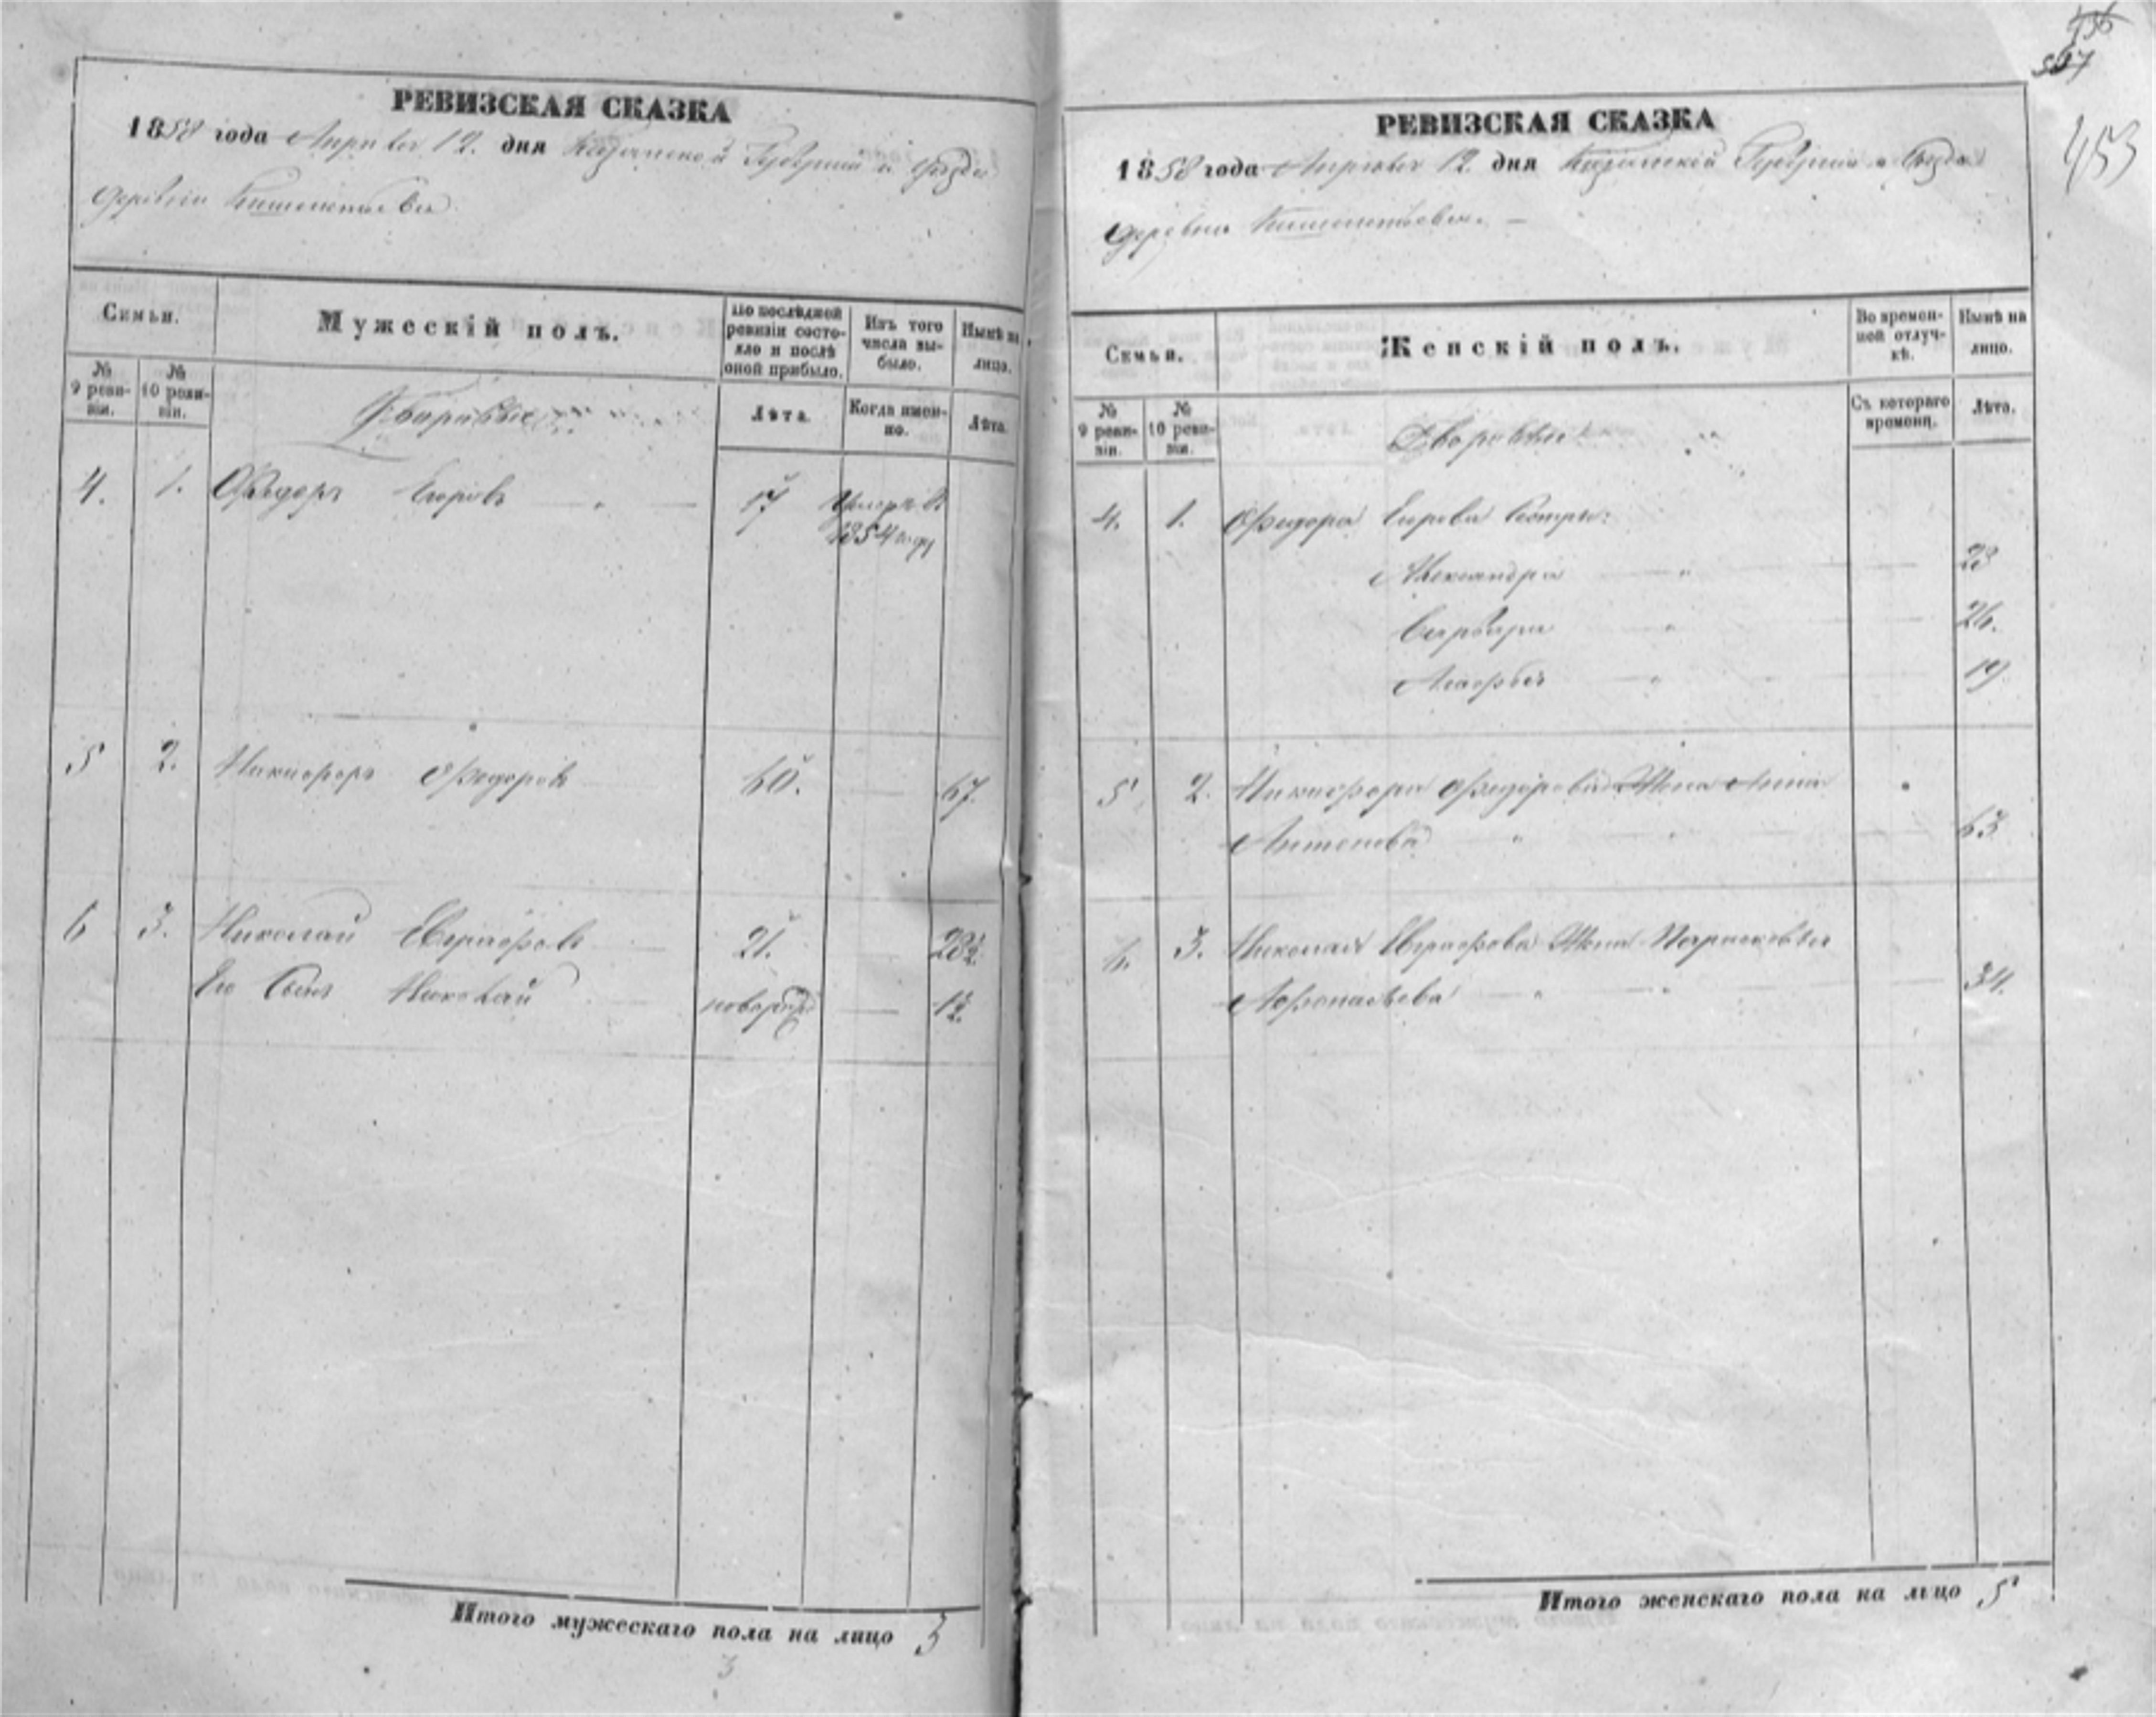 РЕВИЗСКАЯ СКАЗКА
1858 года Апреля 12. дня Казанской Губернии и Уезда
деревни
Семьи.
Мужескій полъ.
По послѣдней ревизіи состояло и послѣ оной прибыло.
Изъ того числа выбыло.
Нынѣ на лицо.
№ 9 ревизіи.
№ 10 ревизіи.
Дворовые
Лѣта.
Когда именно.
Лѣта.
4. 1. Ѳедоръ Егоровъ 17 Умеръ въ 1854 году
5 2. Никифоръ Ѳедоровъ 60. 67.
6 3. Николай Евграфовъ 21. 28½
Его Сынъ Николай новорожд 1½
Итого мужескаго пола на лицо 3
3
507
453
РЕВИЗСКАЯ СКАЗКА
1858 года Апреля 12 дня Казанской Губернии и Уезда
деревни
Семьи.
Женскій полъ.
Во временной отлучкѣ.
Нынѣ на лицо.
№ 9 ревизіи.
№ 10 ревизіи.
Дворовые
Съ котораго времени.
Лѣта.
4. 1. Ѳедора Егорова Сестры:
Александра 23
Варвара 26.
19
5 2. Никифора Ѳедорова Жена Анна
Антонова 63
6. 3. Николая Евграфова Жена Парасковья
Афонасьева 34.
Итого женскаго пола на лицо 5